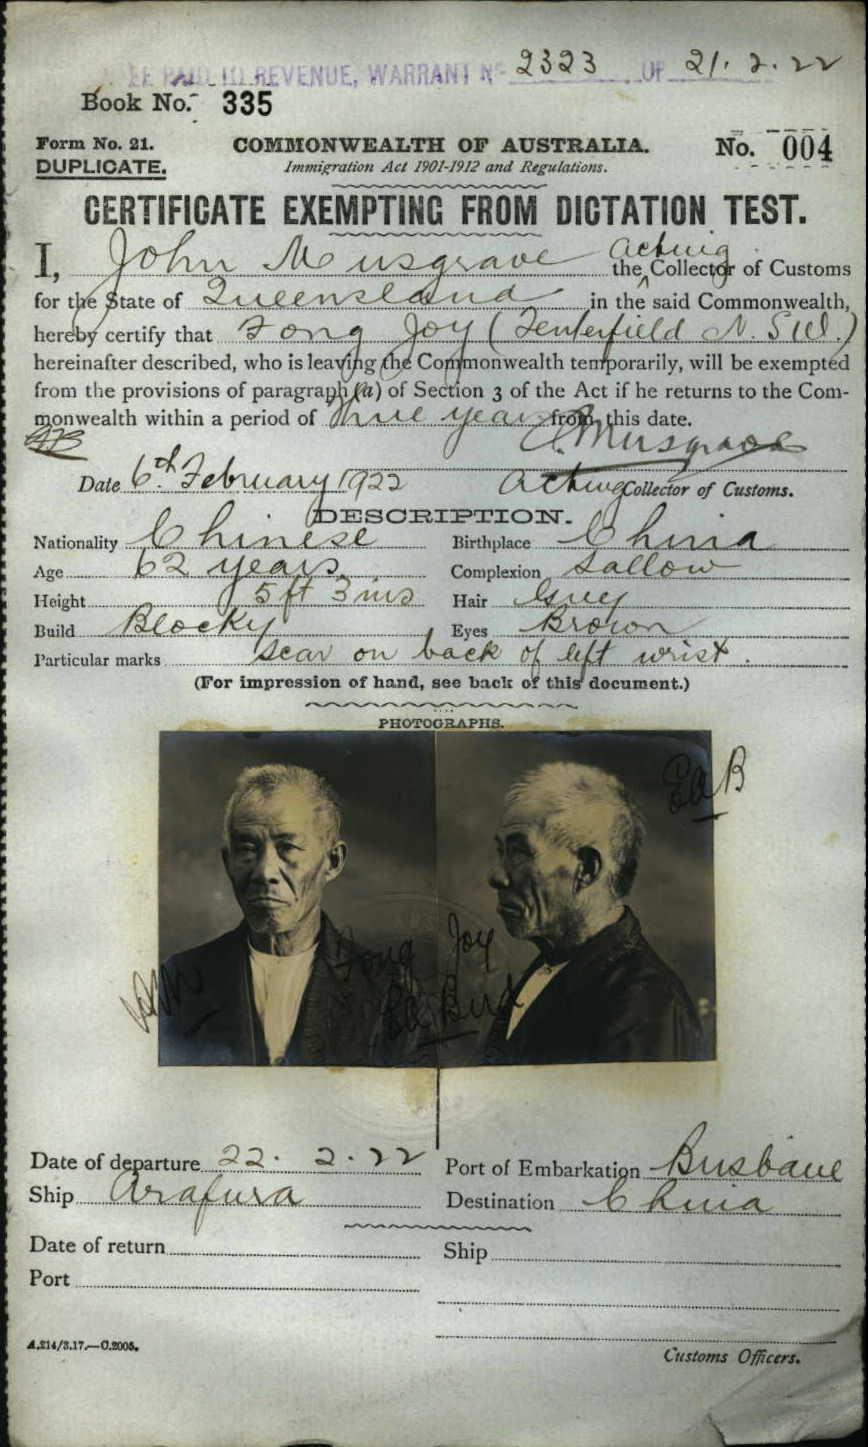 FEE PAID TO REVENUE, WARRANT No 2323 OF 21. 2. 22
Book No. 335
Form No. 21.
DUPLICATE.
COMMONWEALTH OF AUSTRALIA.
Immigration Act 1901-1912 and Regulations.
No. 004
CERTIFICATE EXEMPTING FROM DICTATION TEST.
I, John Musgrave the acting Collector of Customs
for the State of Queensland in the said Commonwealth,
hereby certify that Fong Joy (Tenterfield N. S W.)
hereinafter described, who is leaving the Commonwealth temporarily, will be exempted
from the provisions of paragraph (a) of Section 3 of the Act if he returns to the Com-
monwealth within a period of three years from this date.
J. Musgrave
Date 6th February 1922 Acting Collector of Customs.
DESCRIPTION.
Nationality Chinese Birthplace China
Age 62 years Complexion Sallow
Height 5 ft 3 ins Hair Grey
Build Blocky Eyes Brown
Particular marks Scar on back of left wrist.
(For impression of hand, see back of this document.)
PHOTOGRAPHS.
EaB
Fong Joy
Ea Bird
Date of departure 22. 2. 22 Port of Embarkation Brisbane
Ship Arafura Destination China
Date of return Ship
Port
A.214/3.17.—C.2005.
Customs Officers.